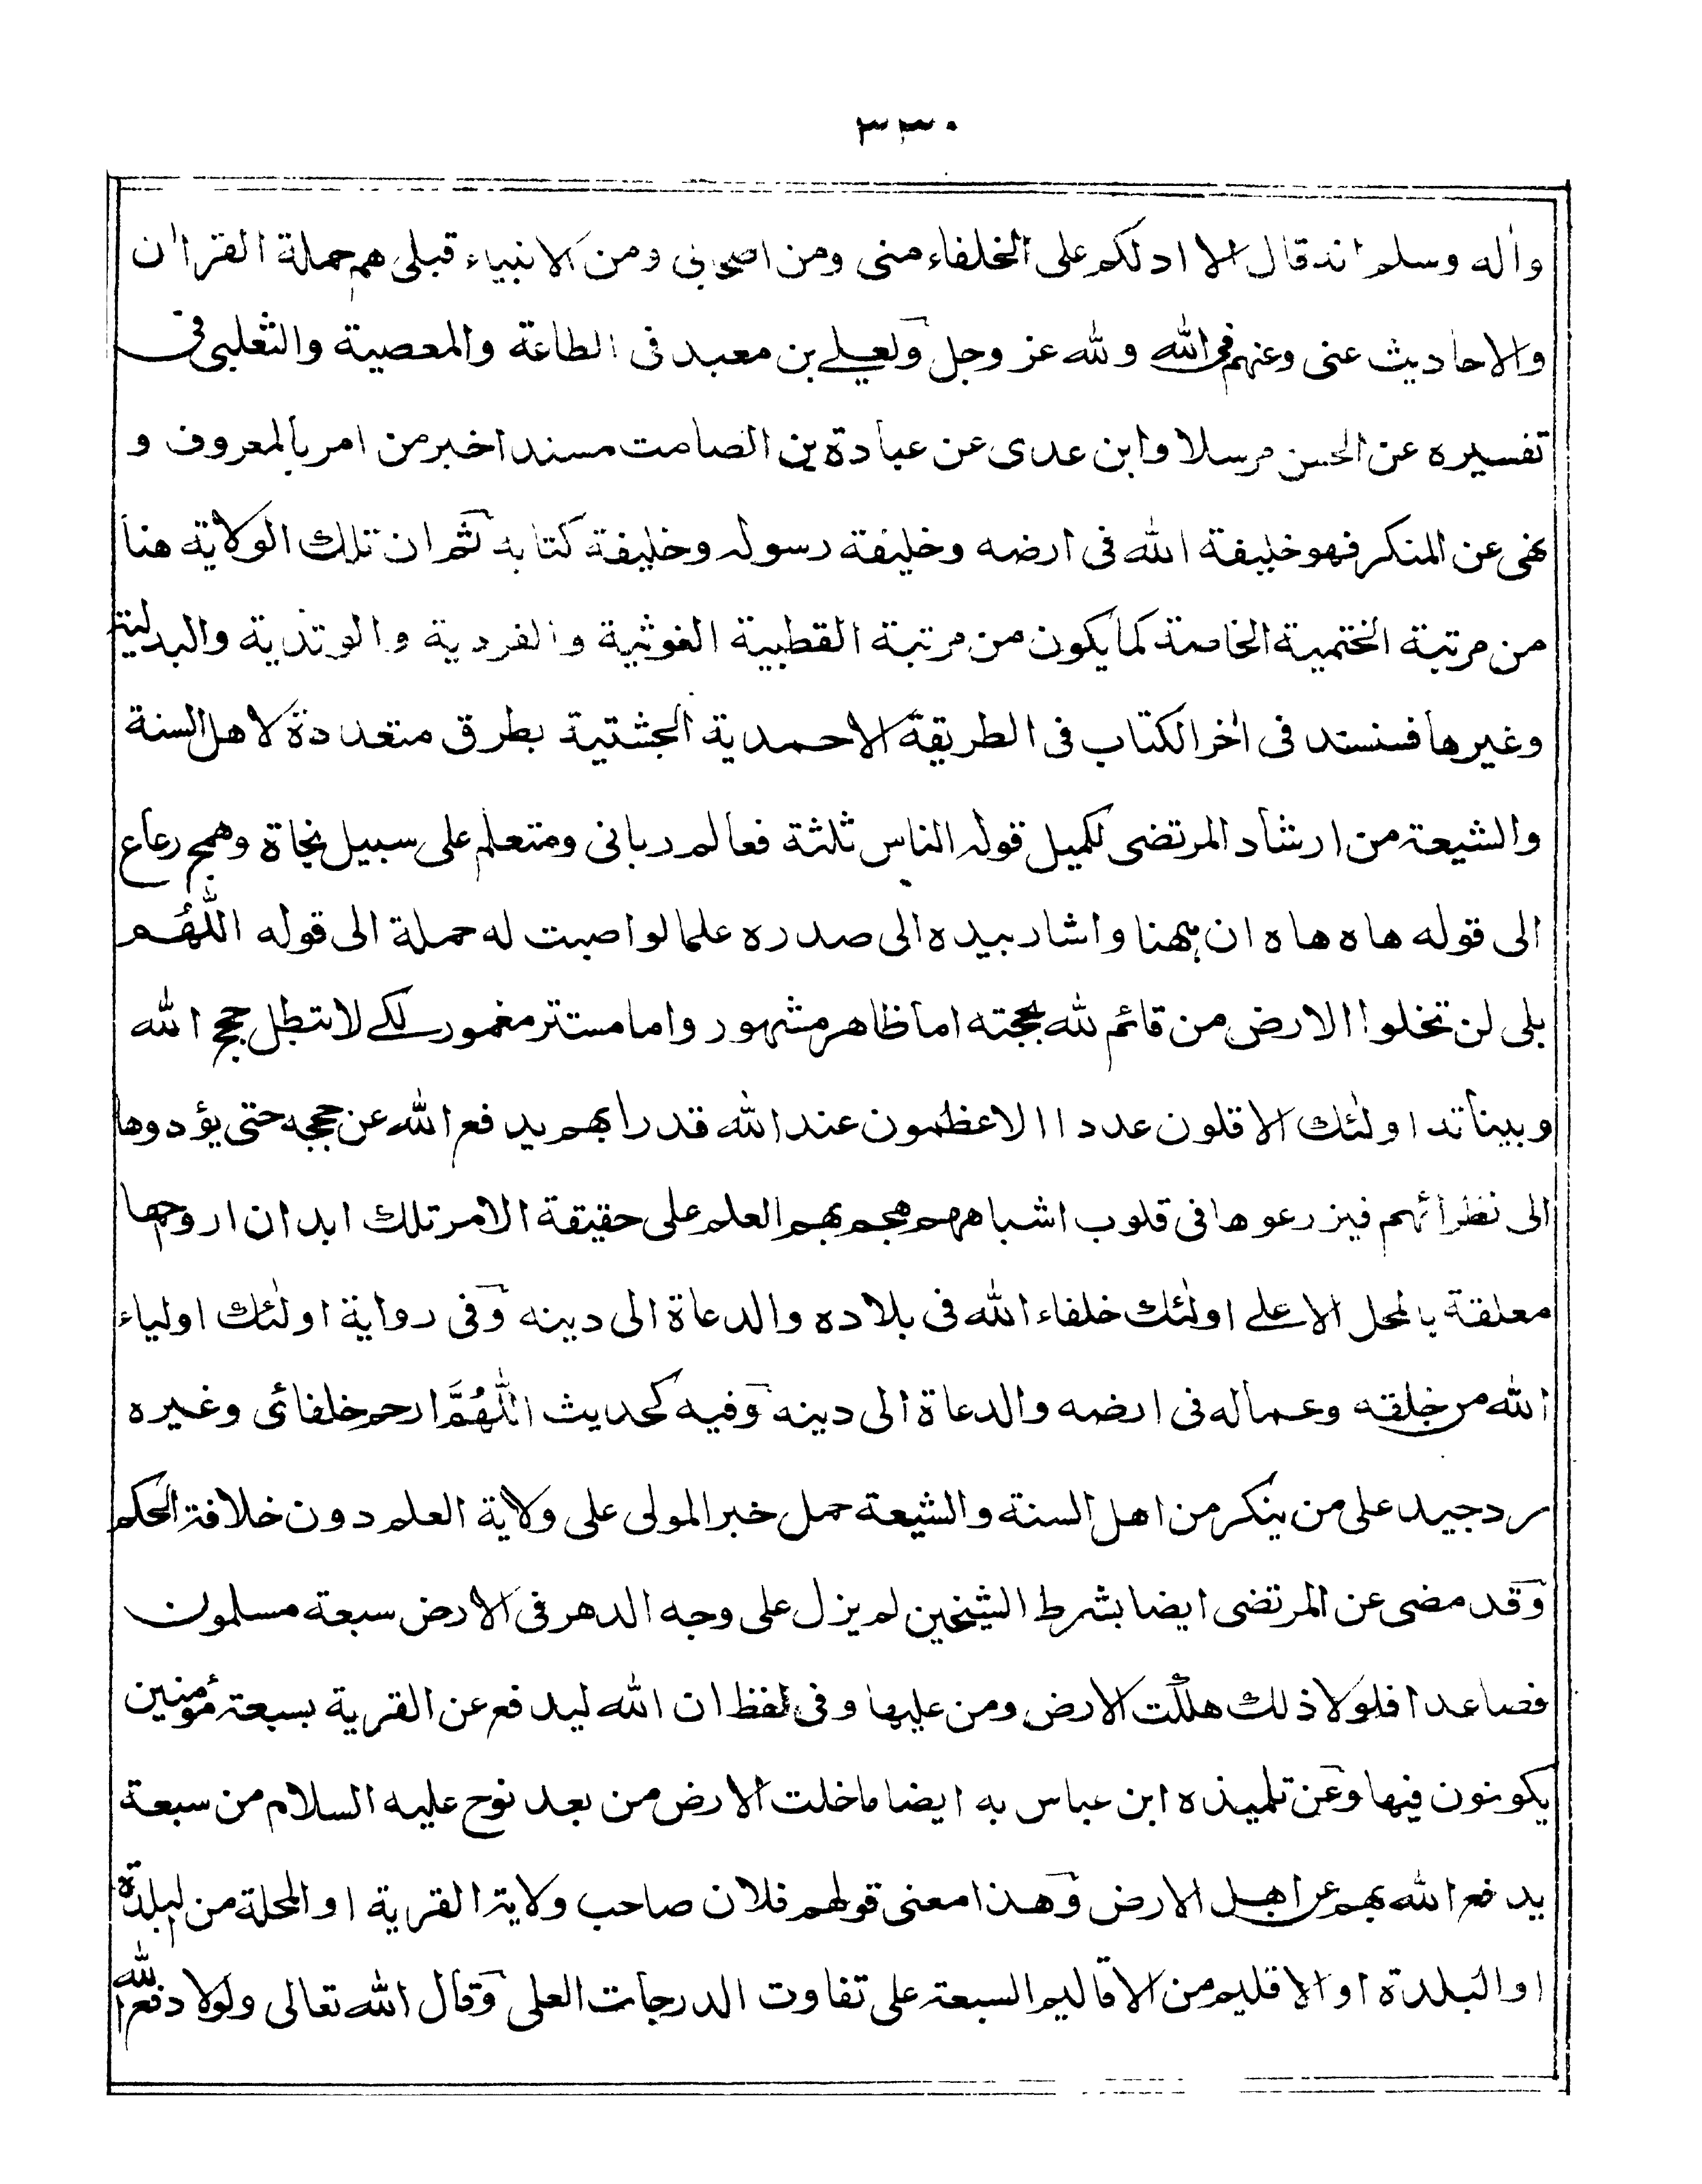 ٣٣٠
واٰله وسلم انه قال الا ادلكم على الخلفاء منى ومن اصحابى ومن الانبياء قبلى هم حملة القراٰن
والاحاديث عنى وعنهم فى الله ولله عز وجل ولعلى بن معبد فى الطاعة والمعصية والثعلبى فى
تفسيره عن الحسن مرسلا وابن عدى عن عبادة بن الصامت مسندا خبر من امر بالمعروف و
نهى عن المنكر فهو خليفة الله فى ارضه وخليفة رسوله وخليفة كتابه ثم ان تلك الولاية هنا
من مرتبة الختمية الخاصة كما يكون من مرتبة القطبية الغوثية والفردية والوتدية والبدلية
وغيرها فسنسند فى اٰخر الكتاب فى الطريقة الاحمدية الجشتية بطرق متعددة لاهل السنة
والشيعة من ارشاد المرتضى لكميل قوله الناس ثلثة فعالم ربانى ومتعلم على سبيل نجاة وهمج رعاع
الى قوله هاه هاه ان ههنا واشار بيده الى صدره علما لو اصبت له حملة الى قوله اللّٰهُم
بلى لن تخلوا الارض من قائم لله بحجته اما ظاهر مشهور واما مستتر مغمور لكے لا تبطل حجج الله
وبيناته اولٰئك الاقلون عددا الاعظمون عند الله قدرا بهم يدفع الله عن حججه حتى يؤدوها
الى نظرائهم فيزرعوها فى قلوب اشباههم هجم بهم العلم على حقيقة الامر تلك ابدان اروحها
معلقة بالمحل الاعلے اولٰئك خلفاء الله فى بلاده والدعاة الى دينه وفى رواية اولٰئك اولياء
الله من خلقه وعماله فى ارضه والدعاة الى دينه وفيه كحديث اللّٰهُمَّ ارحم خلفائى وغيره
رد جيد على من ينكر من اهل السنة والشيعة حمل خبر المولى على ولاية العلم دون خلافة الحكم
وقد مضى عن المرتضى ايضا بشرط الشيخين لم يزل على وجه الدهر فى الارض سبعة مسلمون
فصاعدا فلولا ذلك هلكت الارض ومن عليها وفى لفظ ان الله ليدفع عن القرية بسبعة مؤمنين
يكونون فيها وعن تلميذه ابن عباس به ايضا ما خلت الارض من بعد نوح عليه السلام من سبعة
يدفع الله بهم عن اهل الارض وهذا معنى قولهم فلان صاحب ولاية القرية او المحلة من البلدة
او البلدة او الاقليم من الاقاليم السبعة على تفاوت الدرجات العلى وقال الله تعالى ولولا دفع الله